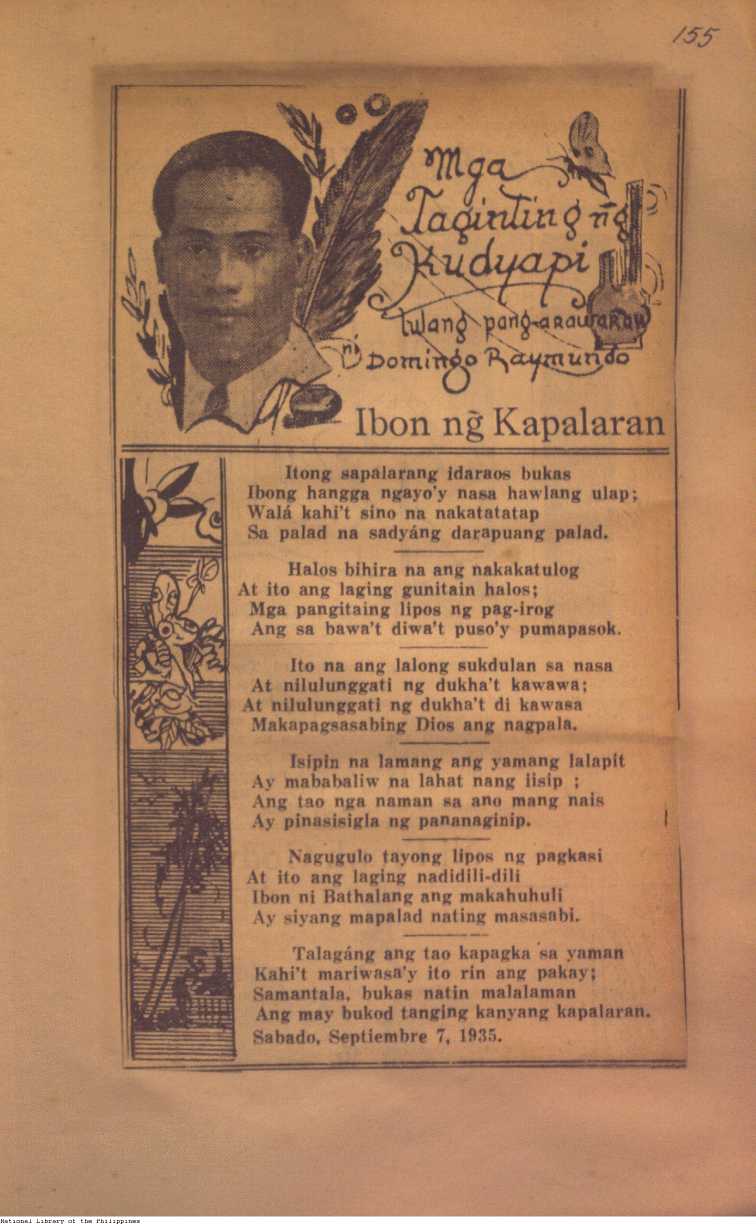 155
Mga
Taginting ng̃
Kudyapi
tulang pang-arawaraw
ni
Domingo Raymundo
Ibon ng̃ Kapalaran
Itong sapalarang idaraos bukas
Ibong hangga ngayo'y nasa hawlang ulap;
Walá kahi't sino na nakatatatap
Sa palad na sadyáng darapuang palad.
Halos bihira na ang nakakatulog
At ito ang laging gunitain halos;
Mga pangitaing lipos ng pag-irog
Ang sa bawa't diwa't puso'y pumapasok.
Ito na ang lalong sukdulan sa nasa
At nilulunggati ng dukha't kawawa;
At nilulunggati ng dukha't di kawasa
Makapagsasabing Dios ang nagpala.
Isipin na lamang ang yamang lalapit
Ay mababaliw na lahat nang iisip ;
Ang tao nga naman sa ano mang nais
Ay pinasisigla ng pananaginip.
Nagugulo tayong lipos ng pagkasi
At ito ang laging nadidili-dili
Ibon ni Bathalang ang makahuhuli
Ay siyang mapalad nating masasabi.
Talagáng ang tao kapagka sa yaman
Kahi't mariwasa'y ito rin ang pakay;
Samantala, bukas natin malalaman
Ang may bukod tanging kanyang kapalaran.
Sabado, Septiembre 7, 1935.
National Library of the Philippines